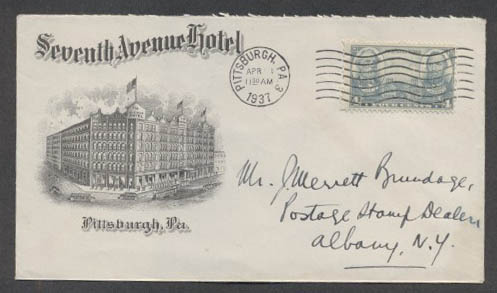 Seventh Avenue Hotel
Pittsburgh, Pa.
PITTSBURGH, PA. 3
APR 1
11 30 AM
1937
Mr. J. Merrett Brundage,
Postage Stamp Dealer
Albany, N.Y.